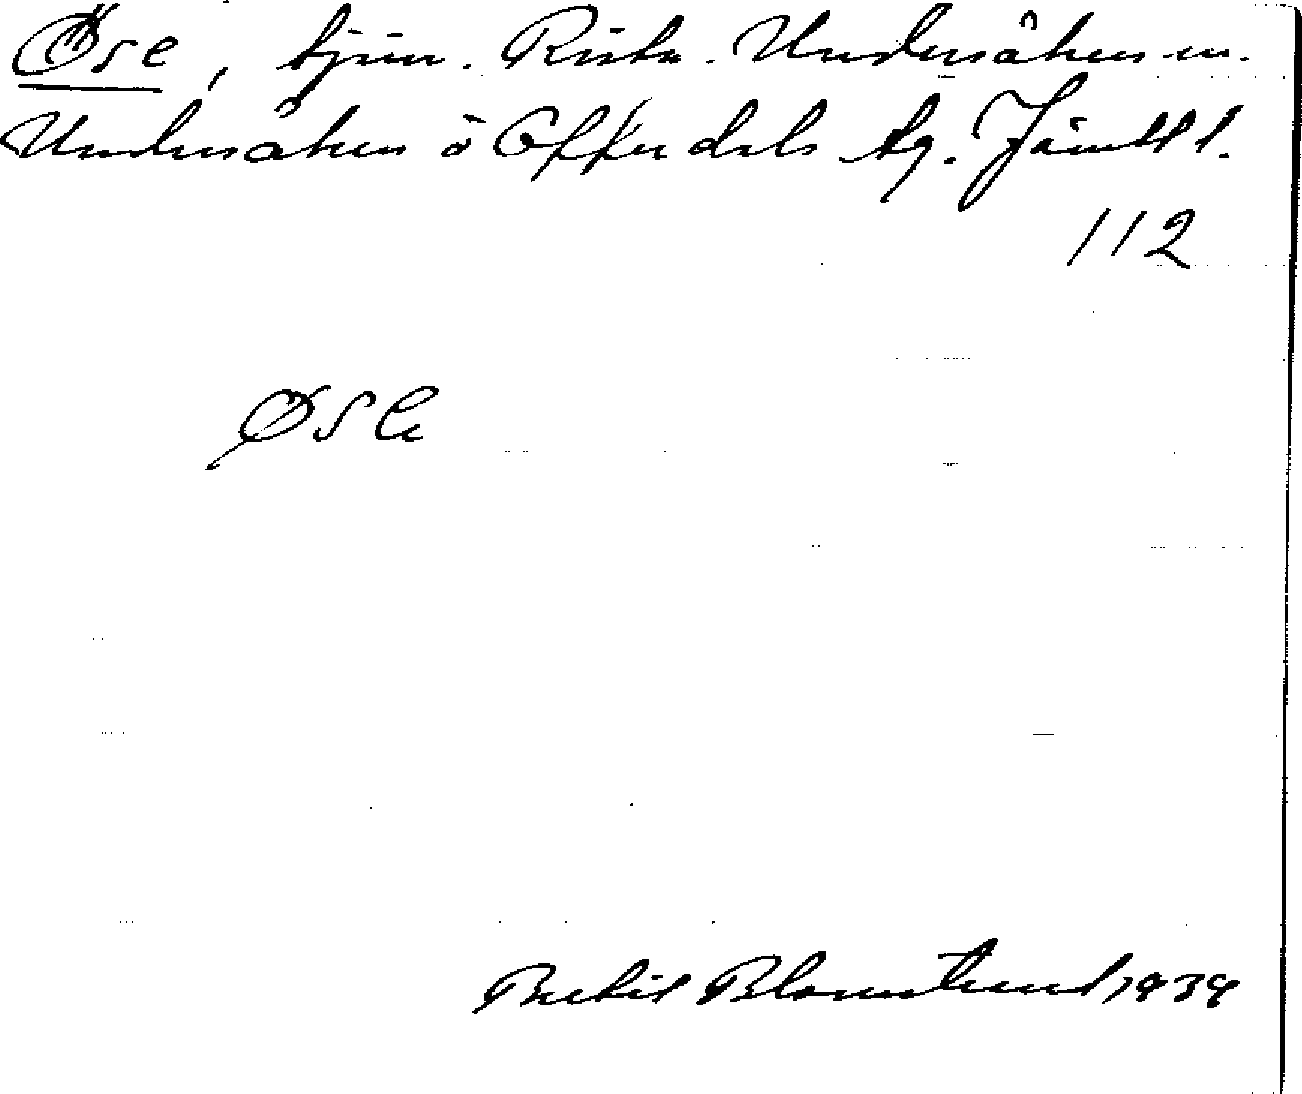 Öse, tjärn. Rista. Undersåkers sn.
Undersåkers o Offerdals tg. Jämtl l.
112
øse
Bertil Blomstrand 1939